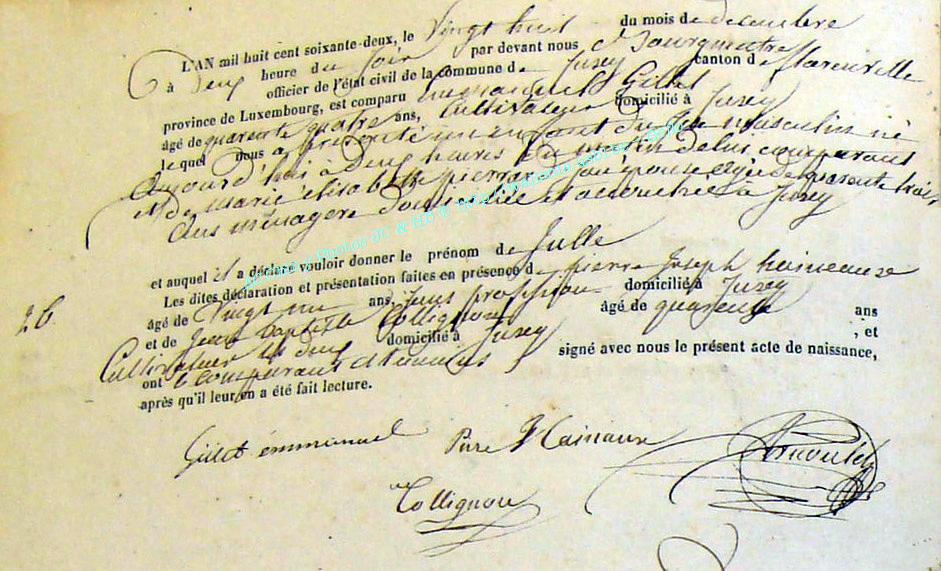 L'AN mil huit cent soixante-deux, le Vingt huit du mois de decembre
à Deux heure du soir par devant nous Bourgmestre
officier de l'état civil de la commune de Juzey canton de flarenville
province de Luxembourg, est comparu Emmanuel Gillet
âgé de quarente quatre ans, Cultivateur domicilié à Juzey
lequel nous a présenté un enfant du sexe masculin né
aujourd'hui à Deux heures du matin de lui comparant
et de marie élisabette pierrard son épouse agée de quarente trois
ans ménagère domiciliée et accouchée a Juzey
et auquel il a déclaré vouloir donner le prénom de Julle
Les dites déclaration et présentation faites en présence de pierre Joseph haineause
âgé de Vingt un ans, sans profession domicilié à Juzey
26.
et de Jean Baptiste Collignon âgé de quarente ans
Cultivateur domicilié à Juzey ; et
ont les deux comparant et témoins signé avec nous le présent acte de naissance,
après qu'il leur en a été fait lecture.
Gillet émmanuel Hainaux
Collignon